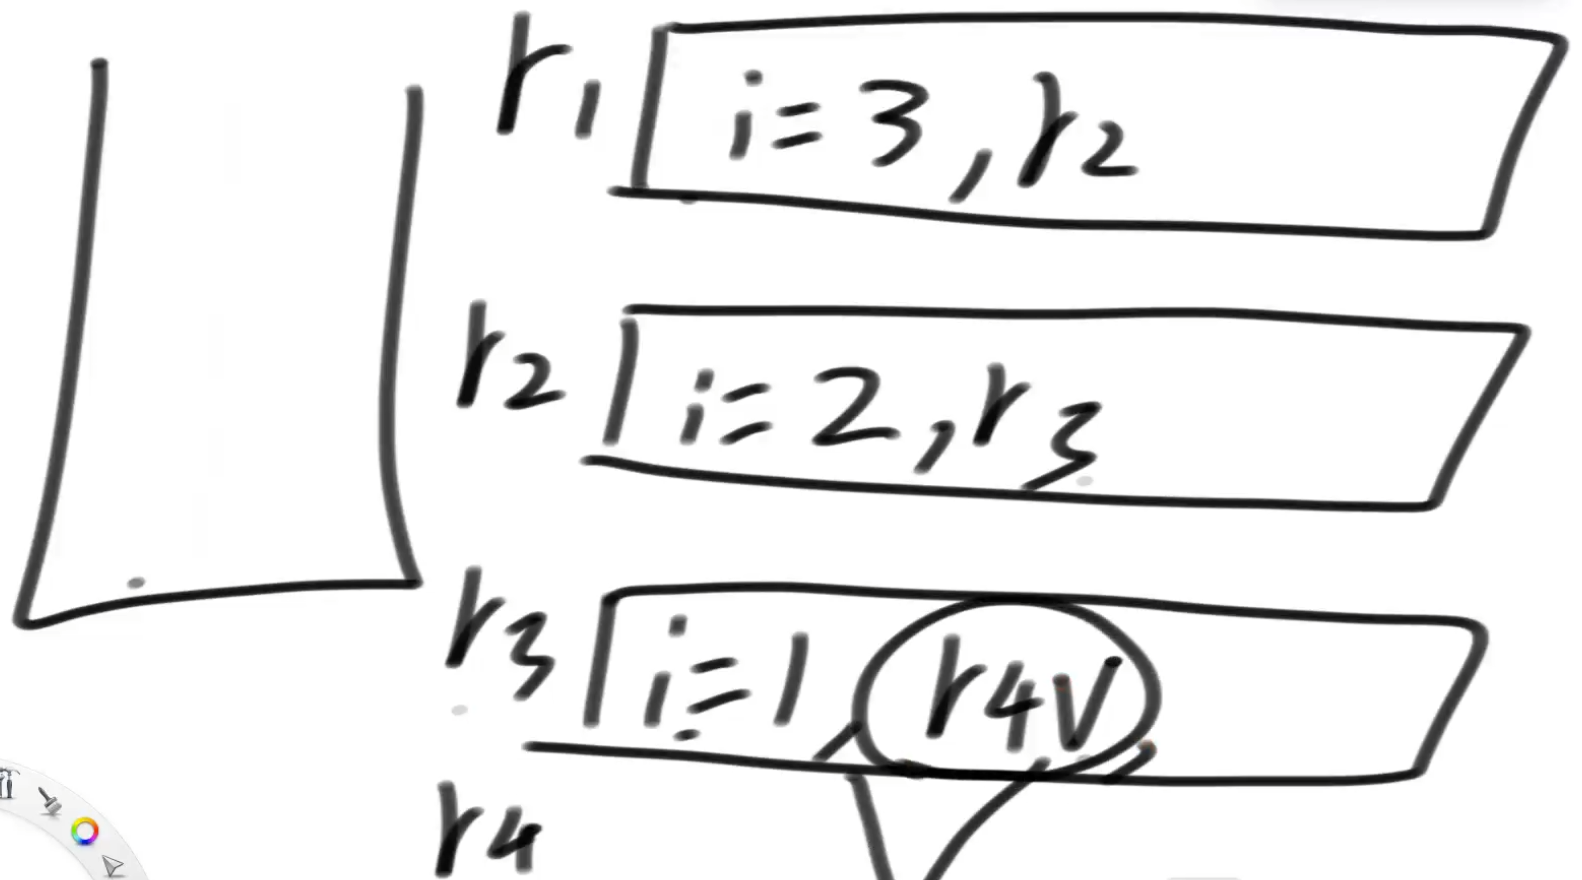 r1 i=3,r2
r2 i=2,r3
r3 i=1,r4V,
r4